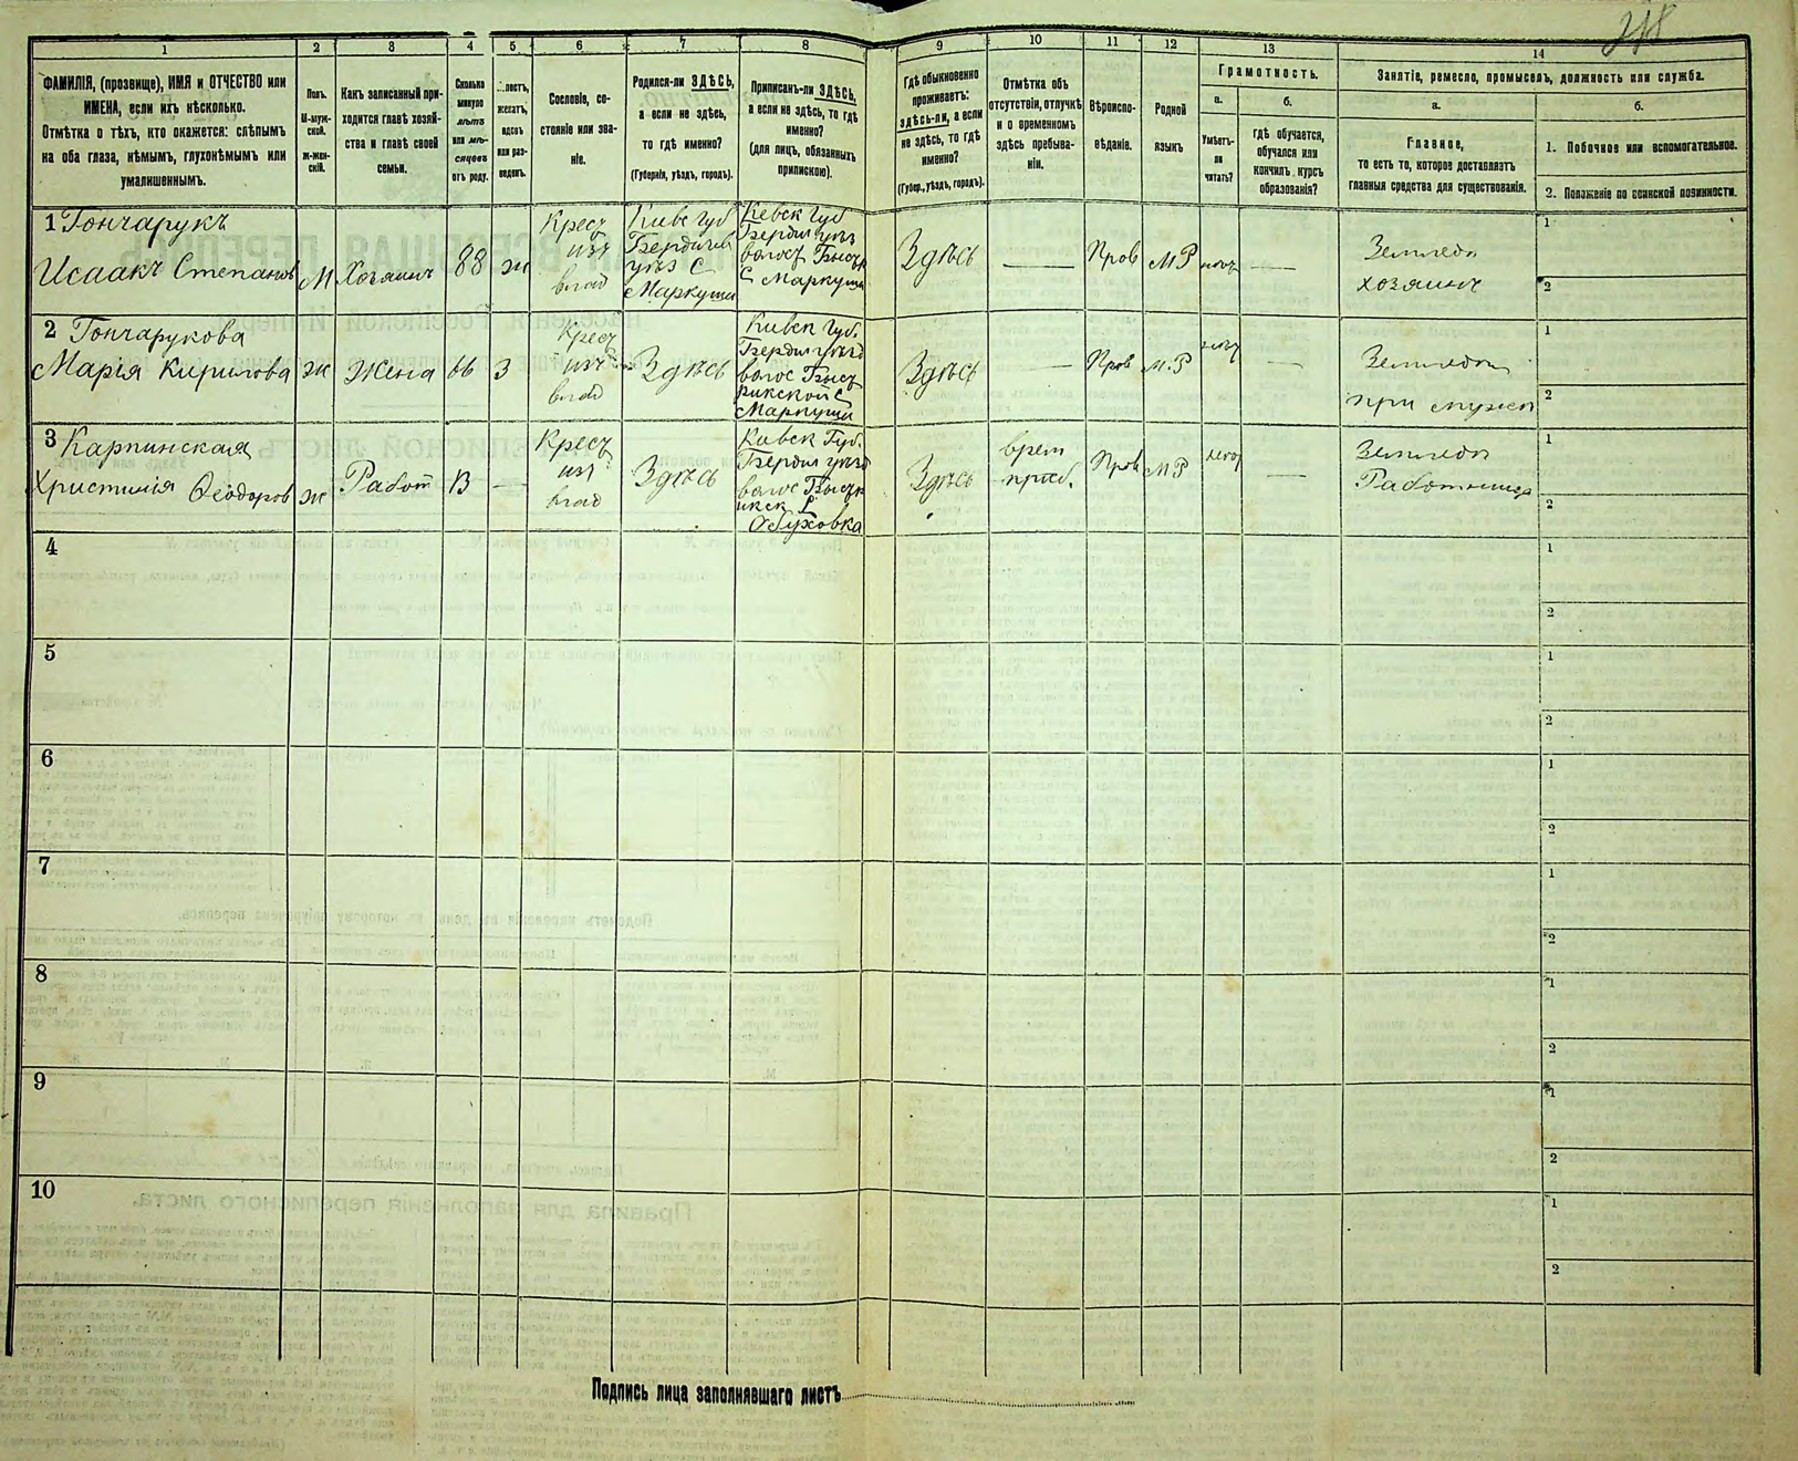 218
1 2 3 4 5 6 7 8 9 10 11 12 13 14
ФАМИЛІЯ, (прозвище), ИМЯ и ОТЧЕСТВО или
ИМЕНА, если ихъ нѣсколько.
Отмѣтка о тѣхъ, кто окажется: слѣпымъ
на оба глаза, нѣмымъ, глухонѣмымъ или
умалишеннымъ.
Полъ.
М-муж-
ской.
Ж-жен-
скій.
Какъ записанный при-
ходится главѣ хозяй-
ства и главѣ своей
семьи.
Сколько
минуло
лѣтъ
или мѣ-
сяцевъ
отъ роду.
женатъ,
вдовъ
или раз-
веденъ.
Сословіе, со-
стояніе или зва-
ніе.
Родился-ли ЗДѢСЬ,
а если не здѣсь,
то гдѣ именно?
(Губернія, уѣздъ, городъ).
Приписанъ-ли ЗДѢСЬ,
а если не здѣсь, то гдѣ
именно?
(для лицъ, обязанныхъ
припискою).
Гдѣ обыкновенно
проживаетъ:
здѣсь-ли, а если
не здѣсь, то гдѣ
именно?
(Губер., уѣздъ, городъ).
Отмѣтка объ
отсутствіи, отлучкѣ
и о временномъ
здѣсь пребыва-
ніи.
Вѣроиспо-
вѣданіе.
Родной
языкъ
Грамотность.
а.
Умѣетъ-
ли
читать?
б.
гдѣ обучается,
обучался или
кончилъ курсъ
образованія?
Занятіе, ремесло, промыселъ, должность или служба.
а.
Главное,
то есть то, которое доставляетъ
главныя средства для существованія.
б.
1. Побочное или вспомогательное.
2. Положеніе по воинской повинности.
1 Гончарукъ
Исаакъ Степановъ
М
Хозяинъ
88
ж
Крест
изъ
влад
Киев Губ
Бердичев
уѣз С
Маркуши
Киевск Губ
Бердич уѣз
волост
С Маркуши
Здѣсь
—
Пров
МР
—
Землед
хозяинъ
1
2
2 Гончарукова
Марія Кирилова
ж
Жена
66
З
Крест
изъ
влад
Здѣсь
Киевск Губ.
Бердич уѣзд
волос Быст
рикской С
Маркуши
Здѣсь
—
Пров
М.Р
—
Землед
при мужем
1
2
3 Карпинская
Христинія Ѳеодоров
ж
Работ
13
—
Крест
из
влад
Здѣсь
Киевск Губ.
Бердич уѣзд
волос Быстр
икск С
Обуховка
Здѣсь
врем
преб.
Пров
МР
—
Землед
Работница
1
2
4
1
2
5
1
2
6
1
2
7
1
2
8
1
2
9
1
2
10
1
2
Подпись лица заполнявшаго листъ